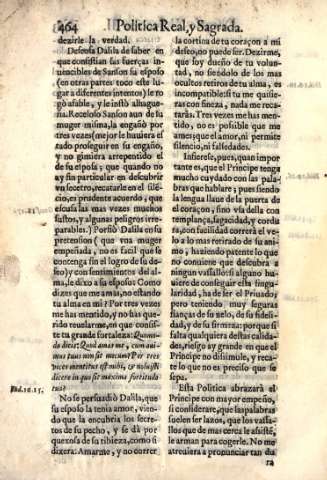 464 Politica Real, y Sagrada.
dezirle la verdad.
Defensa Dalila de saber en
que consistian sus fuerças in-
uencibles de Sanson su esposo
(en otras partes toco este lu-
gar a diferentes intentos) le ro
gò afable, y le instò alhague-
ña. Receloso Sanson aun de su
muger misma, la engañò por
tres vezes (mejor le huuiera es
tado proseguir en su engaño,
y no gimiera arrepentido el
de su esposa; que quando no
ay fin particular en descubrir
vn secreto, recatarle en el silē-
cio, es prudente acuerdo, que
escusa las mas vezes muchos
sustos, y algunas peligros irre-
parables.) Porfiò Dalila en su
pretension (que vna muger
empeñada, no es facil que se
contenga sin el logro de su de-
seo) y con sentimientos del al-
ma, le dixo a su esposo: Como
dizes que me amas, no estando
tu alma en mi? Por tres vezes
me has mentido, y no has que-
rido reuelarme, en que consis-
te tu grande fortaleza: Quomo-
do dicis, Quod amas me, cum ani-
mus tuus non sit mecum? Per tres
vices mentitus est mihi, & noluisti
dicere in quo sit maxima fortitudo
tua?
Iud. 16. 15.
No se persuadiò Dalila, que
su esposo la tenia amor, vien-
do que la encubria los secre-
tos de su pecho, y se dà por
quexosa de su tibieza, como si
dixera: Amarme, y no correr
la cortina de tu coraçon a mi
deseo, no puede ser. Dezirme,
que soy dueño de tu volun-
tad, no siendolo de los mas
ocultos retiros de tu alma, es
incompatible: si tu me quisie-
ras con fineza, nada me reca-
taràs. Tres vezes me has men-
tido, no es posible que me
ames; que el amor, ni permite
silencio, ni falsedades.
Infierese, pues, quan impor
tante es, que el Principe tenga
mucho cuydado con las pala-
bras que hablare; pues siendo
la lengua llaue de la puerta de
el coraçon, sino vsa della con
templança, sagacidad, y cordu
ra, con facilidad correrà el ve-
lo a lo mas retirado de su ani-
mo, haziendo patente lo que
no conuiene que descubra a
ningun vassallo: si alguno hu-
uiere de conseguir esta singu-
laridad, ha de ser el Priuado;
pero teniendo muy seguras
fianças de su zelo, de su fideli-
dad, y de su firmeza: porque si
falta qualquiera destas calida-
des, riesgo ay grande en que el
Principe no dissimule, y reca-
te lo que no es preciso que se
sepa.
Esta Politica abrazarà el
Principe con mayor empeño,
si considerare, que las palabras
suelen ser lazos, que los vassa-
llos que de mas cerca le assisté,
le arman para cogerle. No me
atreuiera a pronunciar tan du
ra